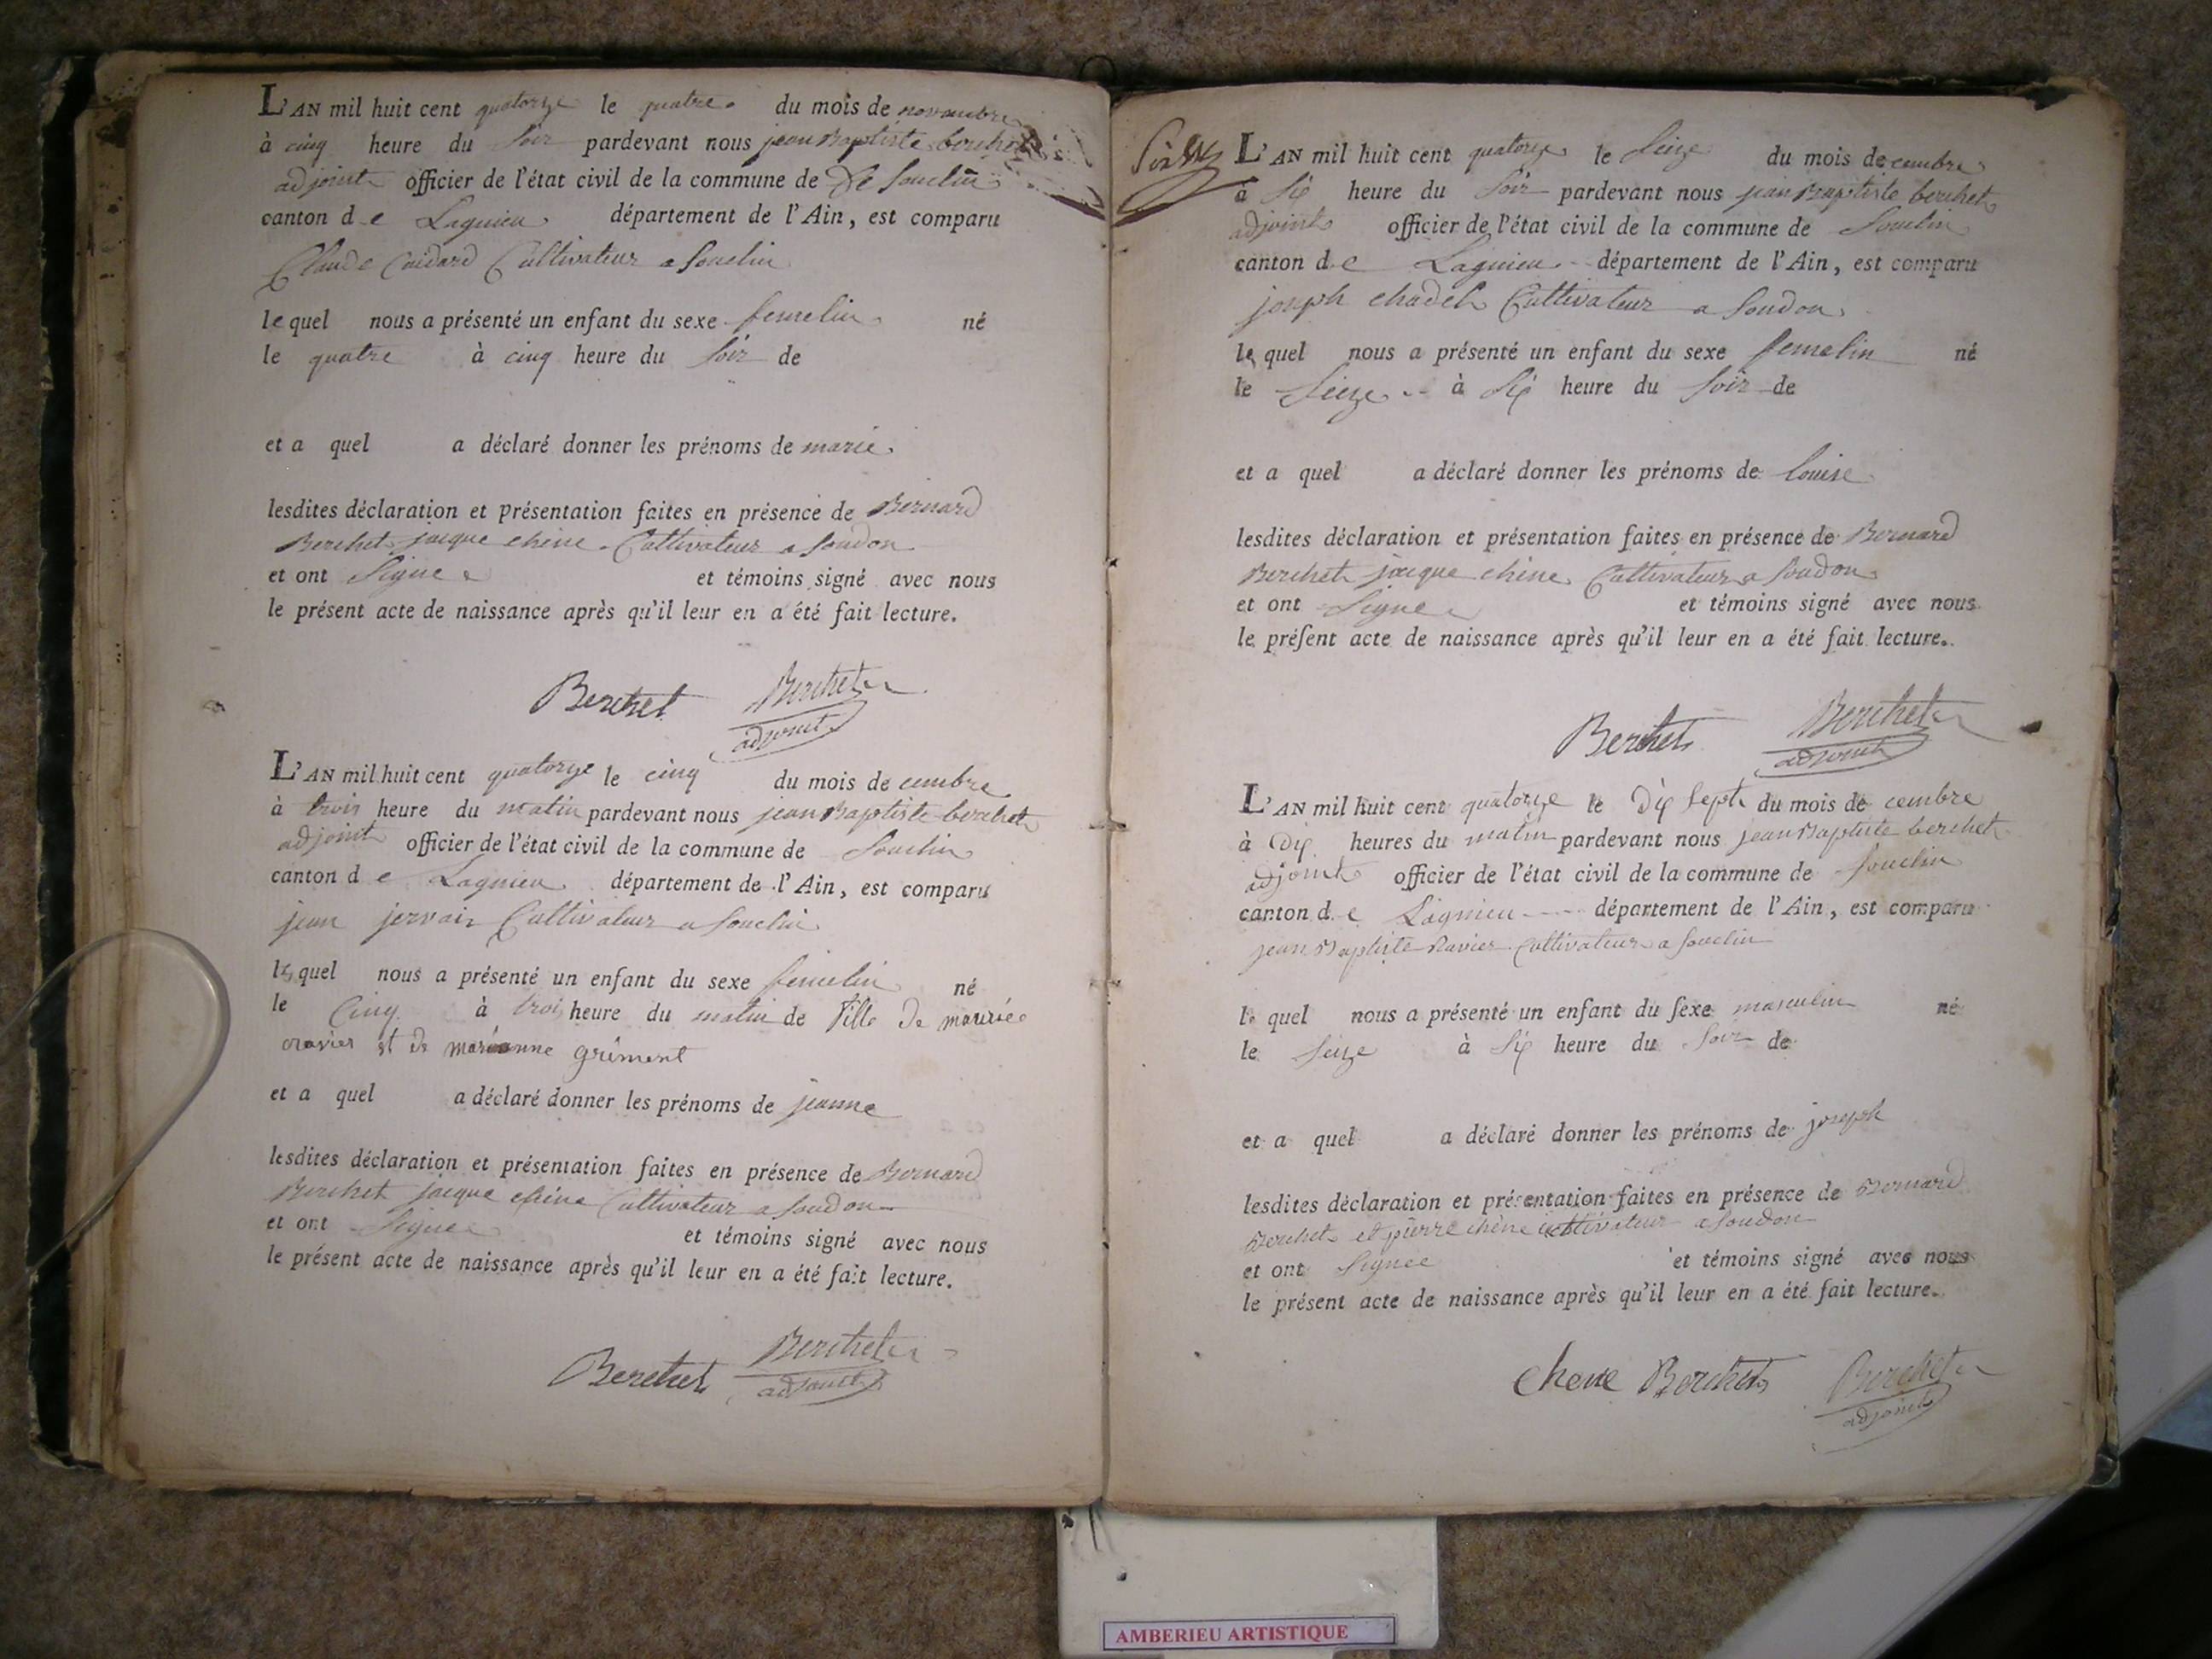 L'AN mil huit cent quatorze le quatre du mois de novembre
à cinq heure du soir pardevant nous jean Baptiste berchet
adjoint officier de l'état civil de la commune de De Souclin
canton d e Lagnieu département de l'Ain, est comparu
Claude Cultivateur a souclin
le quel nous a présenté un enfant du sexe femelin né
le quatre à cinq heure du soir de
et a quel a déclaré donner les prénoms de marie
lesdites déclaration et présentation faites en présence de Bernard
Berchet jacque chene Cultivateur a soudon
et ont signe et témoins signé avec nous
le présent acte de naissance après qu'il leur en a été fait lecture.
Berchet Berchet
adjoint
L'AN mil huit cent quatorze le cinq du mois de cembre
à trois heure du matin pardevant nous jean Baptiste berchet
adjoint officier de l'état civil de la commune de Souclin
canton d e Lagnieu département de l'Ain, est comparu
jean jervais Cultivateur a souclin
le quel nous a présenté un enfant du sexe femelin né
le cinq à trois heure du matin de fille de
et de marianne grument
et a quel a déclaré donner les prénoms de jeanne
lesdites déclaration et présentation faites en présence de Bernard
Berchet jacque chene Cultivateur a soudon
et ont signe et témoins signé avec nous
le présent acte de naissance après qu'il leur en a été fait lecture.
Berchet Berchet
adjoint
L'AN mil huit cent quatorze le seize du mois de cembre
à six heure du soir pardevant nous jean Baptiste berchet
adjoint officier de l'état civil de la commune de Souclin
canton d e Lagnieu département de l'Ain, est comparu
joseph chadel Cultivateur a soudon
le quel nous a présenté un enfant du sexe femelin né
le seize à six heure du soir de
et a quel a déclaré donner les prénoms de louise
lesdites déclaration et présentation faites en présence de Bernard
Berchet jacque chene Cultivateur a soudon
et ont signe et témoins signé avec nous
le préſent acte de naissance après qu'il leur en a été fait lecture.
Berchet Berchet
adjoint
L'AN mil huit cent quatorze le dix sept du mois de cembre
à dix heures du matin pardevant nous jean Baptiste berchet
adjoint officier de l'état civil de la commune de souclin
canton d e Lagnieu département de l'Ain, est comparu
jean Baptiste Ravier cultivateur a souclin
le quel nous a présenté un enfant du ſexe masculin né
le seize à six heure du soir de
et a quel a déclaré donner les prénoms de joseph
lesdites déclaration et présentation faites en présence de Bernard
Berchet et pierre chene cultivateur a soudon
et ont signee et témoins signé avec nous
le présent acte de naissance après qu'il leur en a été fait lecture.
chene Berchet Berchet
adjoint
AMBERIEU ARTISTIQUE